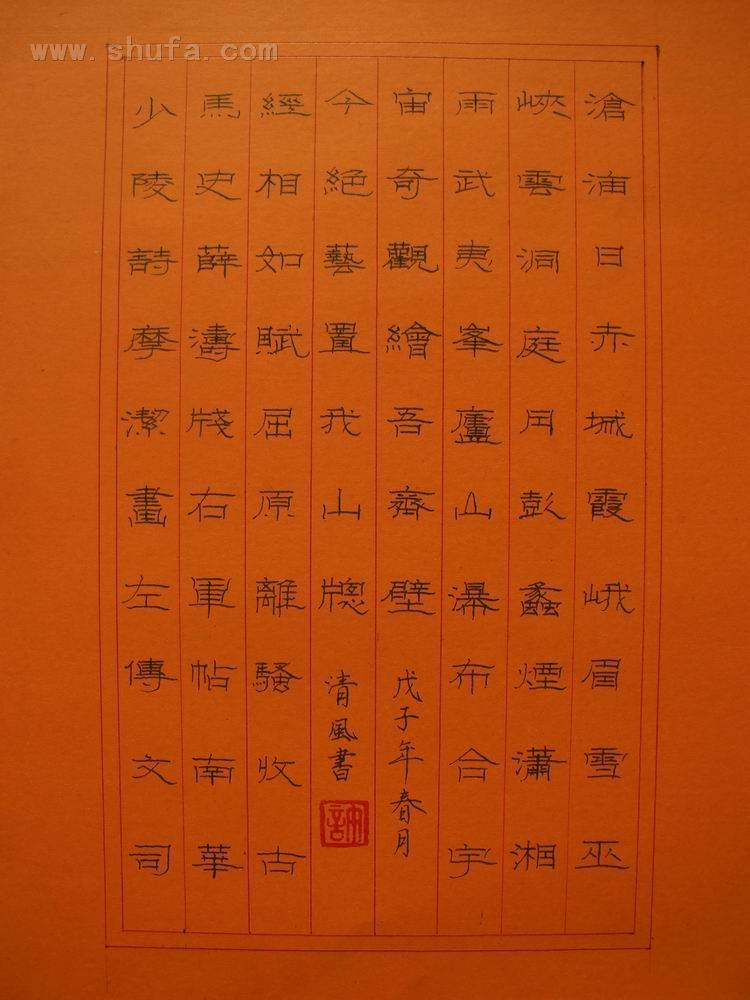 www.shufa.com
滄海日赤城霞峨眉雪巫
峽雲洞庭月彭蠡煙瀟湘
雨武夷峯廬山瀑布合宇
宙奇觀繪吾齋壁
戊子年春月
少陵詩摩潔畫左傳文司
馬史薛濤牋右軍帖南華
經相如賦屈原離騷收古
今絕藝置我山牕
清風書